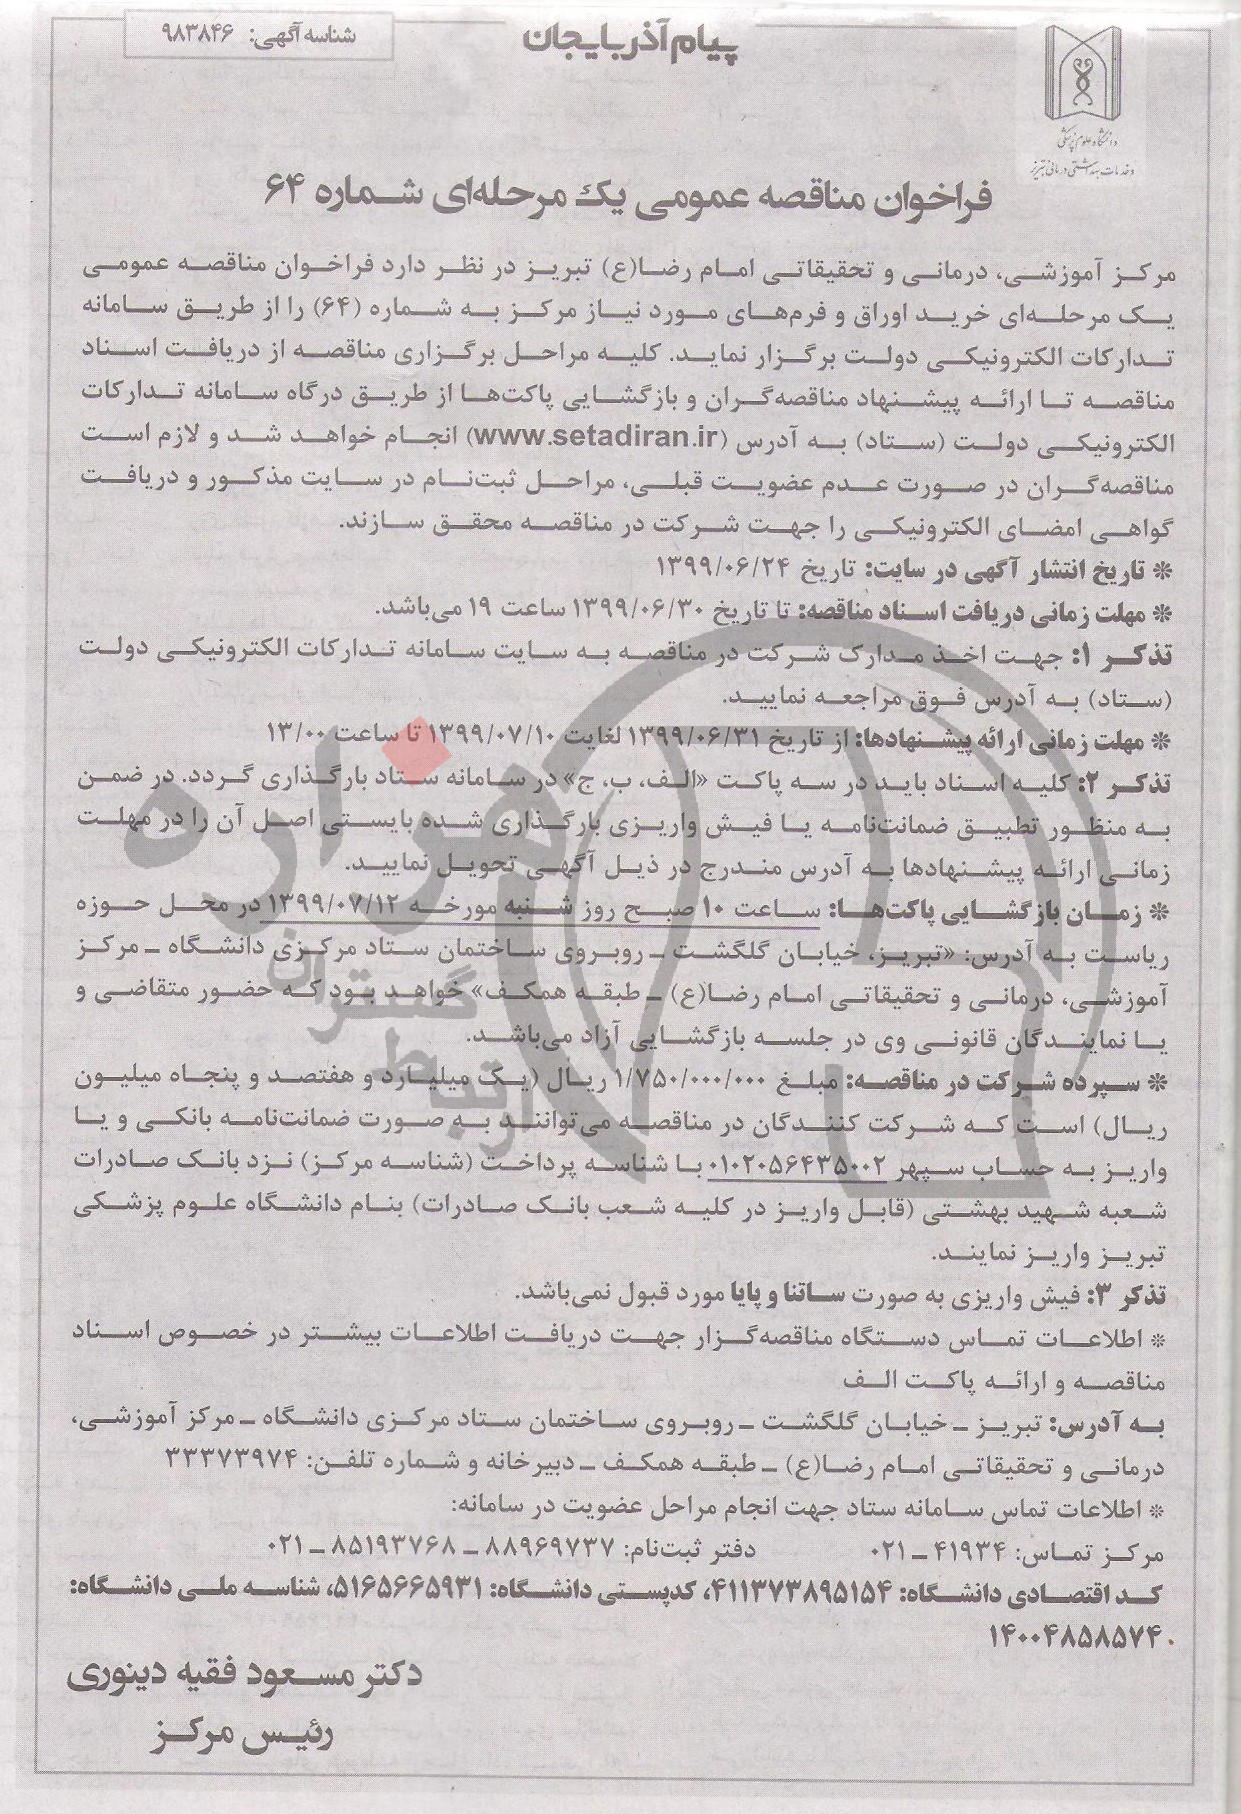 شناسه آگهی: ۹۸۳۸۴۶
پیام آذربایجان
دانشگاه علوم پزشکی
و خدمات بهداشتی درمانی تبریز
فراخوان مناقصه عمومی یک مرحله‌ای شماره ۶۴
مرکز آموزشی، درمانی و تحقیقاتی امام رضا(ع) تبریز در نظر دارد فراخوان مناقصه عمومی
یک مرحله‌ای خرید اوراق و فرم‌های مورد نیاز مرکز به شماره (۶۴) را از طریق سامانه
تدارکات الکترونیکی دولت برگزار نماید. کلیه مراحل برگزاری مناقصه از دریافت اسناد
مناقصه تا ارائه پیشنهاد مناقصه‌گران و بازگشایی پاکت‌ها از طریق درگاه سامانه تدارکات
الکترونیکی دولت (ستاد) به آدرس (www.setadiran.ir) انجام خواهد شد و لازم است
مناقصه‌گران در صورت عدم عضویت قبلی، مراحل ثبت‌نام در سایت مذکور و دریافت
گواهی امضای الکترونیکی را جهت شرکت در مناقصه محقق سازند.
* تاریخ انتشار آگهی در سایت: تاریخ ۱۳۹۹/۰۶/۲۴
* مهلت زمانی دریافت اسناد مناقصه: تا تاریخ ۱۳۹۹/۰۶/۳۰ ساعت ۱۹ می‌باشد.
تذکر ۱: جهت اخذ مدارک شرکت در مناقصه به سایت سامانه تدارکات الکترونیکی دولت
(ستاد) به آدرس فوق مراجعه نمایید.
* مهلت زمانی ارائه پیشنهادها: از تاریخ ۱۳۹۹/۰۶/۳۱ لغایت ۱۳۹۹/۰۷/۱۰ تا ساعت ۱۳/۰۰
تذکر ۲: کلیه اسناد باید در سه پاکت «الف، ب، ج» در سامانه ستاد بارگذاری گردد. در ضمن
به منظور تطبیق ضمانت‌نامه یا فیش واریزی بارگذاری شده بایستی اصل آن را در مهلت
زمانی ارائه پیشنهادها به آدرس مندرج در ذیل آگهی تحویل نمایید.
* زمان بازگشایی پاکت‌ها: ساعت ۱۰ صبح روز شنبه مورخه ۱۳۹۹/۰۷/۱۲ در محل حوزه
ریاست به آدرس: «تبریز، خیابان گلگشت ـ روبروی ساختمان ستاد مرکزی دانشگاه ـ مرکز
آموزشی، درمانی و تحقیقاتی امام رضا(ع) ـ طبقه همکف» خواهد بود که حضور متقاضی و
یا نمایندگان قانونی وی در جلسه بازگشایی آزاد می‌باشد.
* سپرده شرکت در مناقصه: مبلغ ۱/۷۵۰/۰۰۰/۰۰۰ ریال (یک میلیارد و هفتصد و پنجاه میلیون
ریال) است که شرکت کنندگان در مناقصه می‌توانند به صورت ضمانت‌نامه بانکی و یا
واریز به حساب سپهر ۰۱۰۲۰۵۶۴۳۵۰۰۲ با شناسه پرداخت (شناسه مرکز) نزد بانک صادرات
شعبه شهید بهشتی (قابل واریز در کلیه شعب بانک صادرات) بنام دانشگاه علوم پزشکی
تبریز واریز نمایند.
تذکر ۳: فیش واریزی به صورت ساتنا و پایا مورد قبول نمی‌باشد.
* اطلاعات تماس دستگاه مناقصه‌گزار جهت دریافت اطلاعات بیشتر در خصوص اسناد
مناقصه و ارائه پاکت الف
به آدرس: تبریز ـ خیابان گلگشت ـ روبروی ساختمان ستاد مرکزی دانشگاه ـ مرکز آموزشی،
درمانی و تحقیقاتی امام رضا(ع) ـ طبقه همکف ـ دبیرخانه و شماره تلفن: ۳۳۳۷۳۹۷۴
* اطلاعات تماس سامانه ستاد جهت انجام مراحل عضویت در سامانه:
مرکز تماس: ۴۱۹۳۴ ـ ۰۲۱ دفتر ثبت‌نام: ۸۸۹۶۹۷۳۷ ـ ۸۵۱۹۳۷۶۸ ـ ۰۲۱
کد اقتصادی دانشگاه: ۴۱۱۳۷۳۸۹۵۱۵۴، کدپستی دانشگاه: ۵۱۶۵۶۶۵۹۳۱، شناسه ملی دانشگاه:
۱۴۰۰۴۸۵۸۵۷۴۰
دکتر مسعود فقیه دینوری
رئیس مرکز
هزاره
گستران
ارتباط